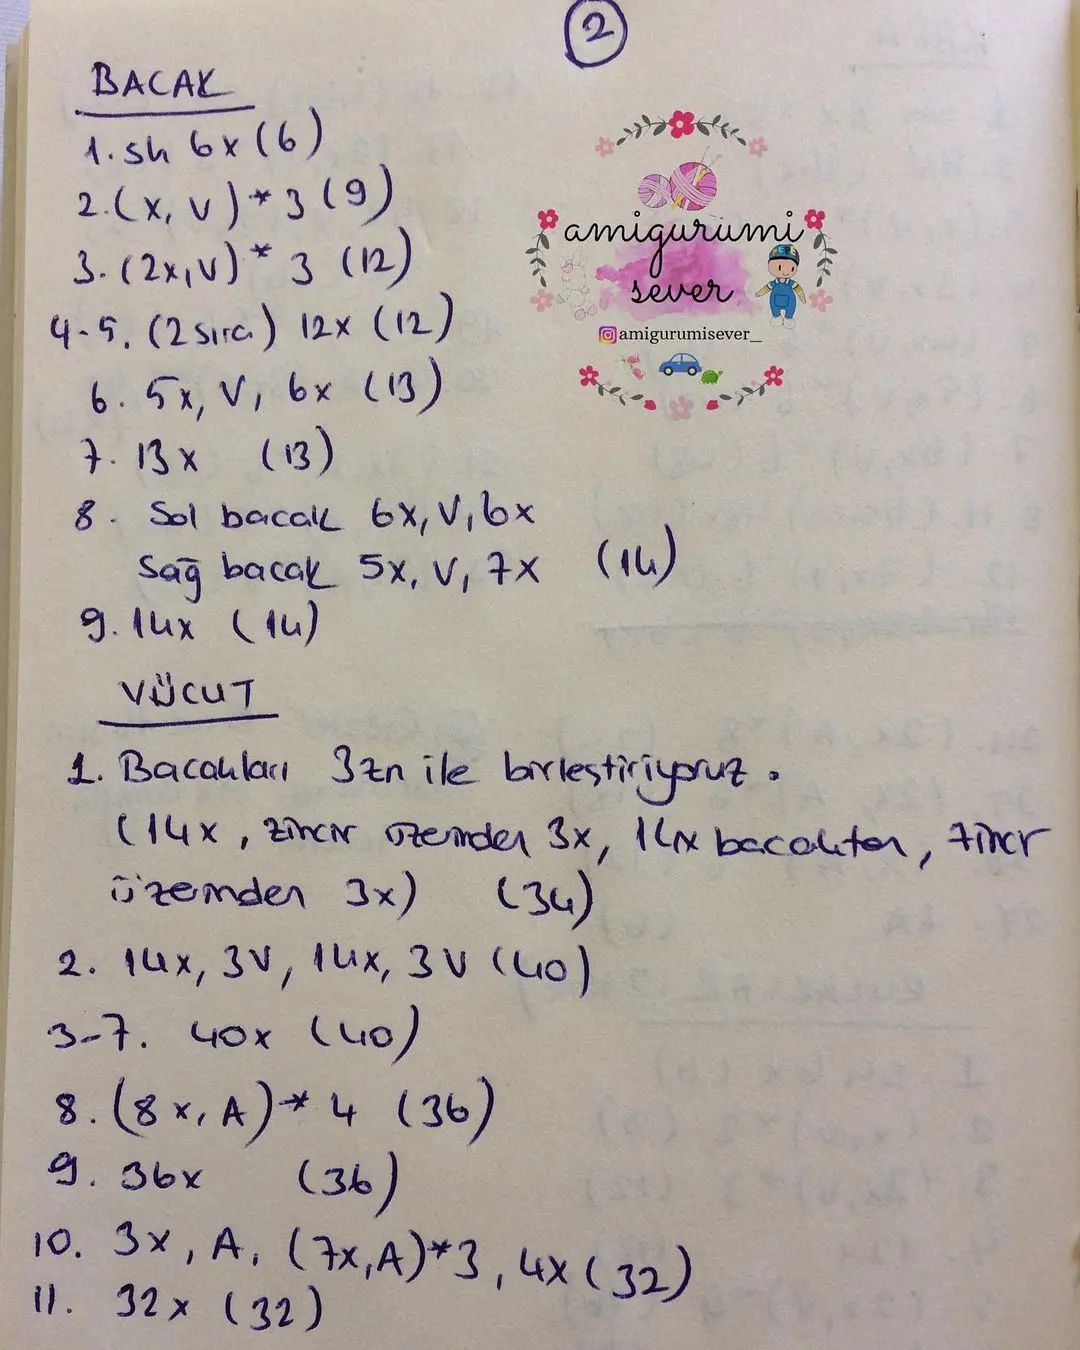 2
BACAK
1. sh 6x (6)
2. (x, v) * 3 (9)
3. (2x, v) * 3 (12)
4-5. (2 sıra) 12x (12)
6. 5x, V, 6x (13)
7. 13x (13)
8. Sol bacak 6x, V, 6x
Sağ bacak 5x, v, 7x (14)
9. 14x (14)
amigurumi
sever
amigurumisever_
VÜCUT
1. Bacakları 3zn ile birleştiriyoruz.
(14x, zincir üzerinden 3x, 14x bacaktan, zincir
üzerinden 3x) (34)
2. 14x, 3V, 14x, 3V (40)
3-7. 40x (40)
8. (8x, A) * 4 (36)
9. 36x (36)
10. 3x, A, (7x, A) * 3, 4x (32)
11. 32x (32)